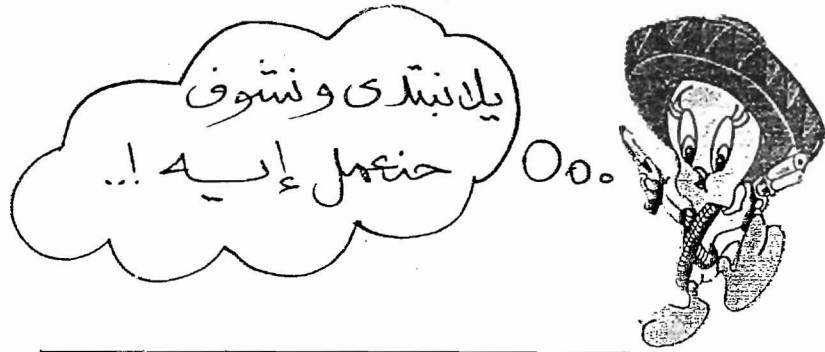 يلا نبتدى ونشوف
حنعمل إيه !..